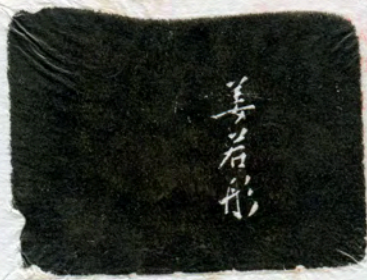 姜若彤